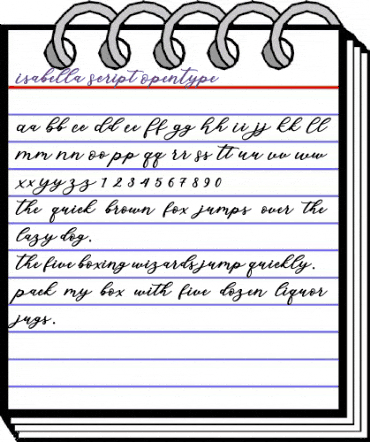 isabella script opentype
aa bb cc dd ee ff gg hh ii jj kk ll
mm nn oo pp qq rr ss tt uu vv ww
xx yy zz 1 2 3 4 5 6 7 8 9 0
the quick brown fox jumps over the
lazy dog.
the five boxing wizards jump quickly.
pack my box with five dozen liquor
jugs.